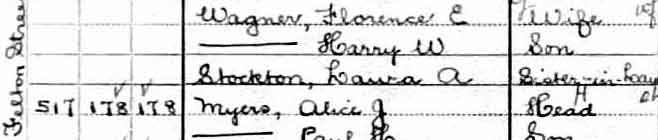 Wagner, Florence E Wife
Harry W Son
Stockton, Laura A Sister-in-Law
517 178 178 Myers, Alice J Head
Paul Son
Felton Street